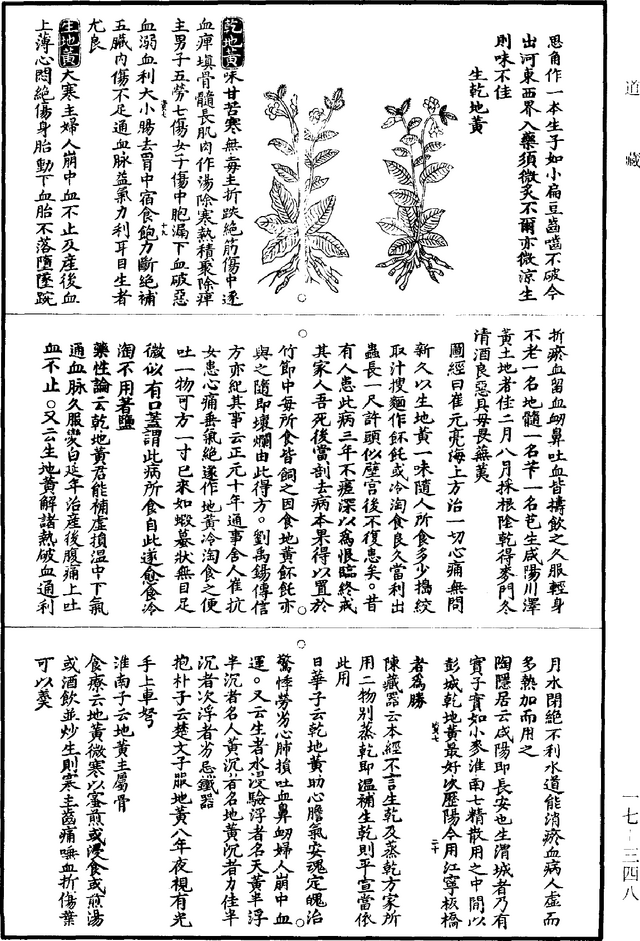 道藏
思角作一本生子如小扁豆齧嚙不破今
出河東西界入藥須微炙不爾亦微涼生
則味不佳
生乾地黃
乾地黃味甘苦寒無毒主折跌絕筋傷中逐
血痺填骨髓長肌肉作湯除寒熱積聚除痺
主男子五勞七傷女子傷中胞漏下血破惡
血溺血利大小腸去胃中宿食飽力斷絕補
五臟內傷不足通血脉益氣力利耳目生者
尤良
生地黃大寒主婦人崩中血不止及產後血
上薄心悶絕傷身胎動下血胎不落墮墜踠
折瘀血留血衂鼻吐血皆擣飲之久服輕身
不老一名地髓一名苄一名芑生咸陽川澤
黃土地者佳二月八月採根陰乾得麥門冬
清酒良惡貝母畏蕪荑
圖經曰崔元亮海上方治一切心痛無問
新久以生地黃一味隨人所食多少搗絞
取汁搜麵作飥飥或冷淘食良久當利出
蟲長一尺許頭似壁宮後不復患矣。昔
有人患此病三年不瘥深以為恨臨終戒
其家人吾死後當剖去病本果得以置於
竹節中每所食皆飼之因食地黃飥飥亦
與之隨即壞爛由此得方。劉禹錫傳信
方亦紀其事云正元十年通事舍人崔抗
女患心痛垂氣絕遂作地黃冷淘食之便
吐一物可方一寸已來如蝦蟇狀無目足
微似有口蓋謂此病所食自此遂愈食冷
淘不用著鹽
藥性論云乾地黃君能補虛損溫中下氣
通血脉久服變白延年治產後腹痛上吐
血不止。又云生地黃解諸熱破血通利
月水閉絕不利水道能消瘀血病人虛而
多熱加而用之
陶隱居云咸陽即長安也生渭城者乃有
實子實如小麥淮南七精散用之中間以
彭城乾地黃最好次歷陽今用江寧板橋
者為勝
陳藏器云本經不言生乾及蒸乾方家所
用二物別蒸乾即溫補生乾則平宣當依
此用
日華子云乾地黃助心膽氣安魂定魄治
驚悸勞劣心肺損吐血鼻衂婦人崩中血
運。又云生者水浸驗浮者名天黃半浮
半沉者名人黃沉者名地黃沉者力佳半
沉者次浮者劣忌鐵器
抱朴子云楚文子服地黃八年夜視有光
手上車弩
淮南子云地黃主屬骨
食療云地黃微寒以蜜煎或浸食或煎湯
或酒飲並炒生則寒主齒痛唾血折傷葉
可以羹
一七-三四八